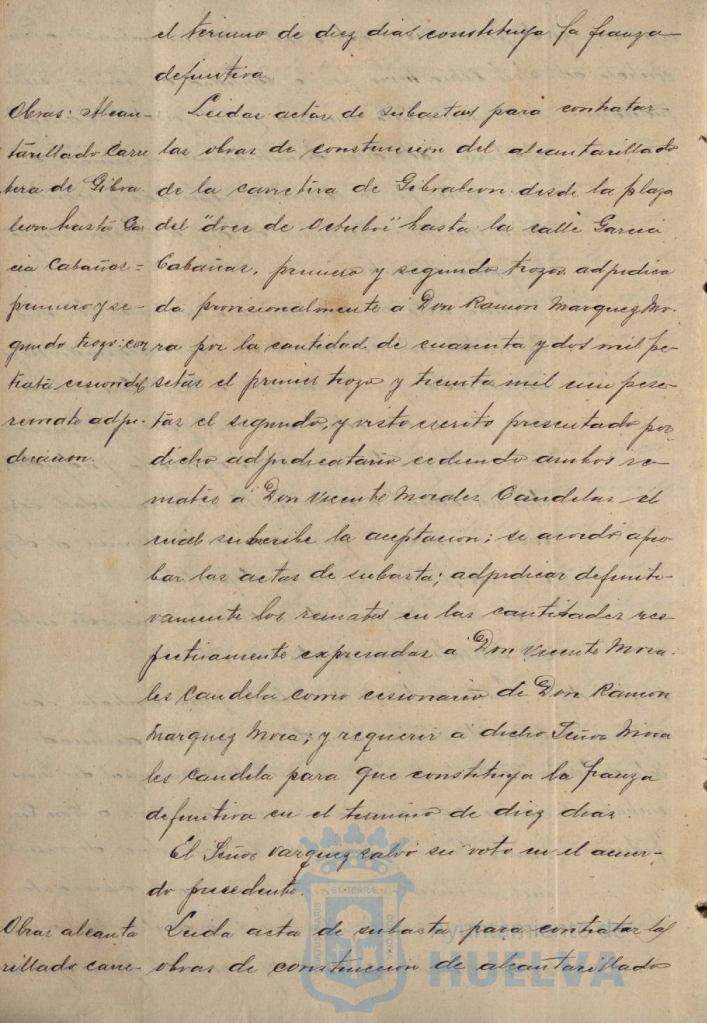 el termino de diez dias constituya la fianza
definitiva
Obras: Alcan-
tarillado Carre
tera de Gibra
leon hasta Gar
cia Cabañas=
primero y se-
gundo trozo: con
trata cesion del
remate adju-
dicacion.
Leidas actas de subastas para contratar
las obras de construccion del alcantarillado
de la carretera de Gibraleon desde la plaza
del "doce de Octubre" hasta la calle Garcia
Cabañas, primero y segundo trozos adjudica
da provisionalmente á Don Ramon Marquez Mo-
ra por la cantidad de cuarenta y dos mil pe-
setas el primer trozo y treinta mil una pese-
tas el segundo, y visto escrito presentado por
dicho adjudicatario cediendo ambos re-
mates á Don Vicente Morales Candelas el
cual suscribe la aceptacion; se acordó apro
bar las actas de subasta; adjudicar definiti-
vamente los remates en las cantidades res
pectivamente expresadas á Don Vicente Mora-
les Candela como cesionario de Don Ramon
Marquez Mora; y requerir á dicho Señor Mora
les Candela para que constituya la fianza
definitiva en el termino de diez dias.
El Señor Vazquez salvó su voto en el acuer-
do precedente.
Obras alcanta
rillado carre-
Leida acta de subasta para contratar las
obras de construccion de alcantarillado
HUELVA